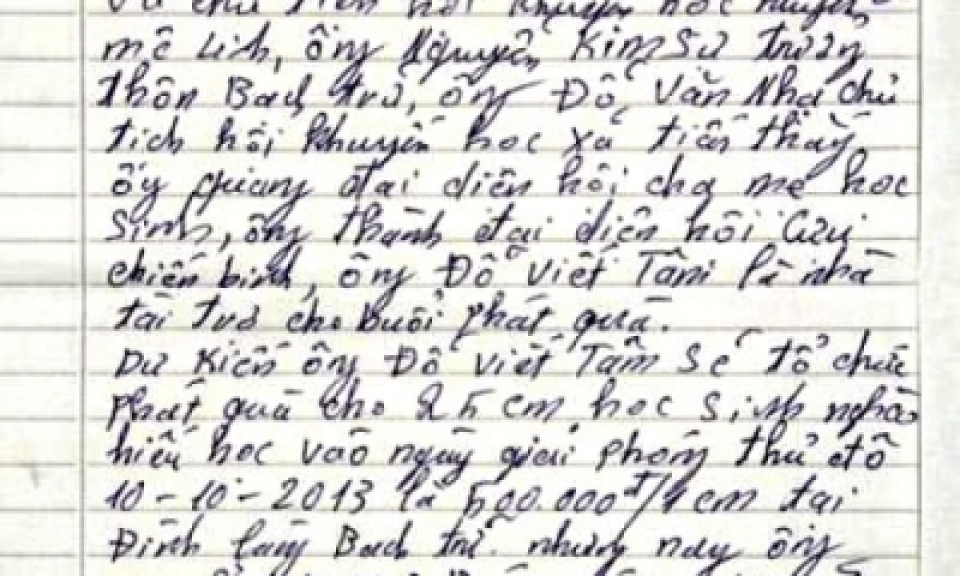 chủ tịch hội khuyến học huyện
mê Linh, ông Nguyễn Kim Sử trưởng
thôn Bạch trữ, ông Đỗ Văn Nha chủ
tich hội khuyến học xã tiến thắng
ông quang đại diện hội cha mẹ học
Sinh, ông thành đại diện hội Cựu
chiến binh, ông Đỗ Viết Tâm là nhà
tài trợ cho buổi phát quà.
Dự Kiến ông Đỗ Viết Tâm Sẽ tổ chức
phát quà cho 25 em học Sinh nghèo
hiếu học vào ngày giải phóng thủ đô
10-10-2013 là 500.000đ/1 em tại
Đình làng Bạch trữ. nhưng nay ông